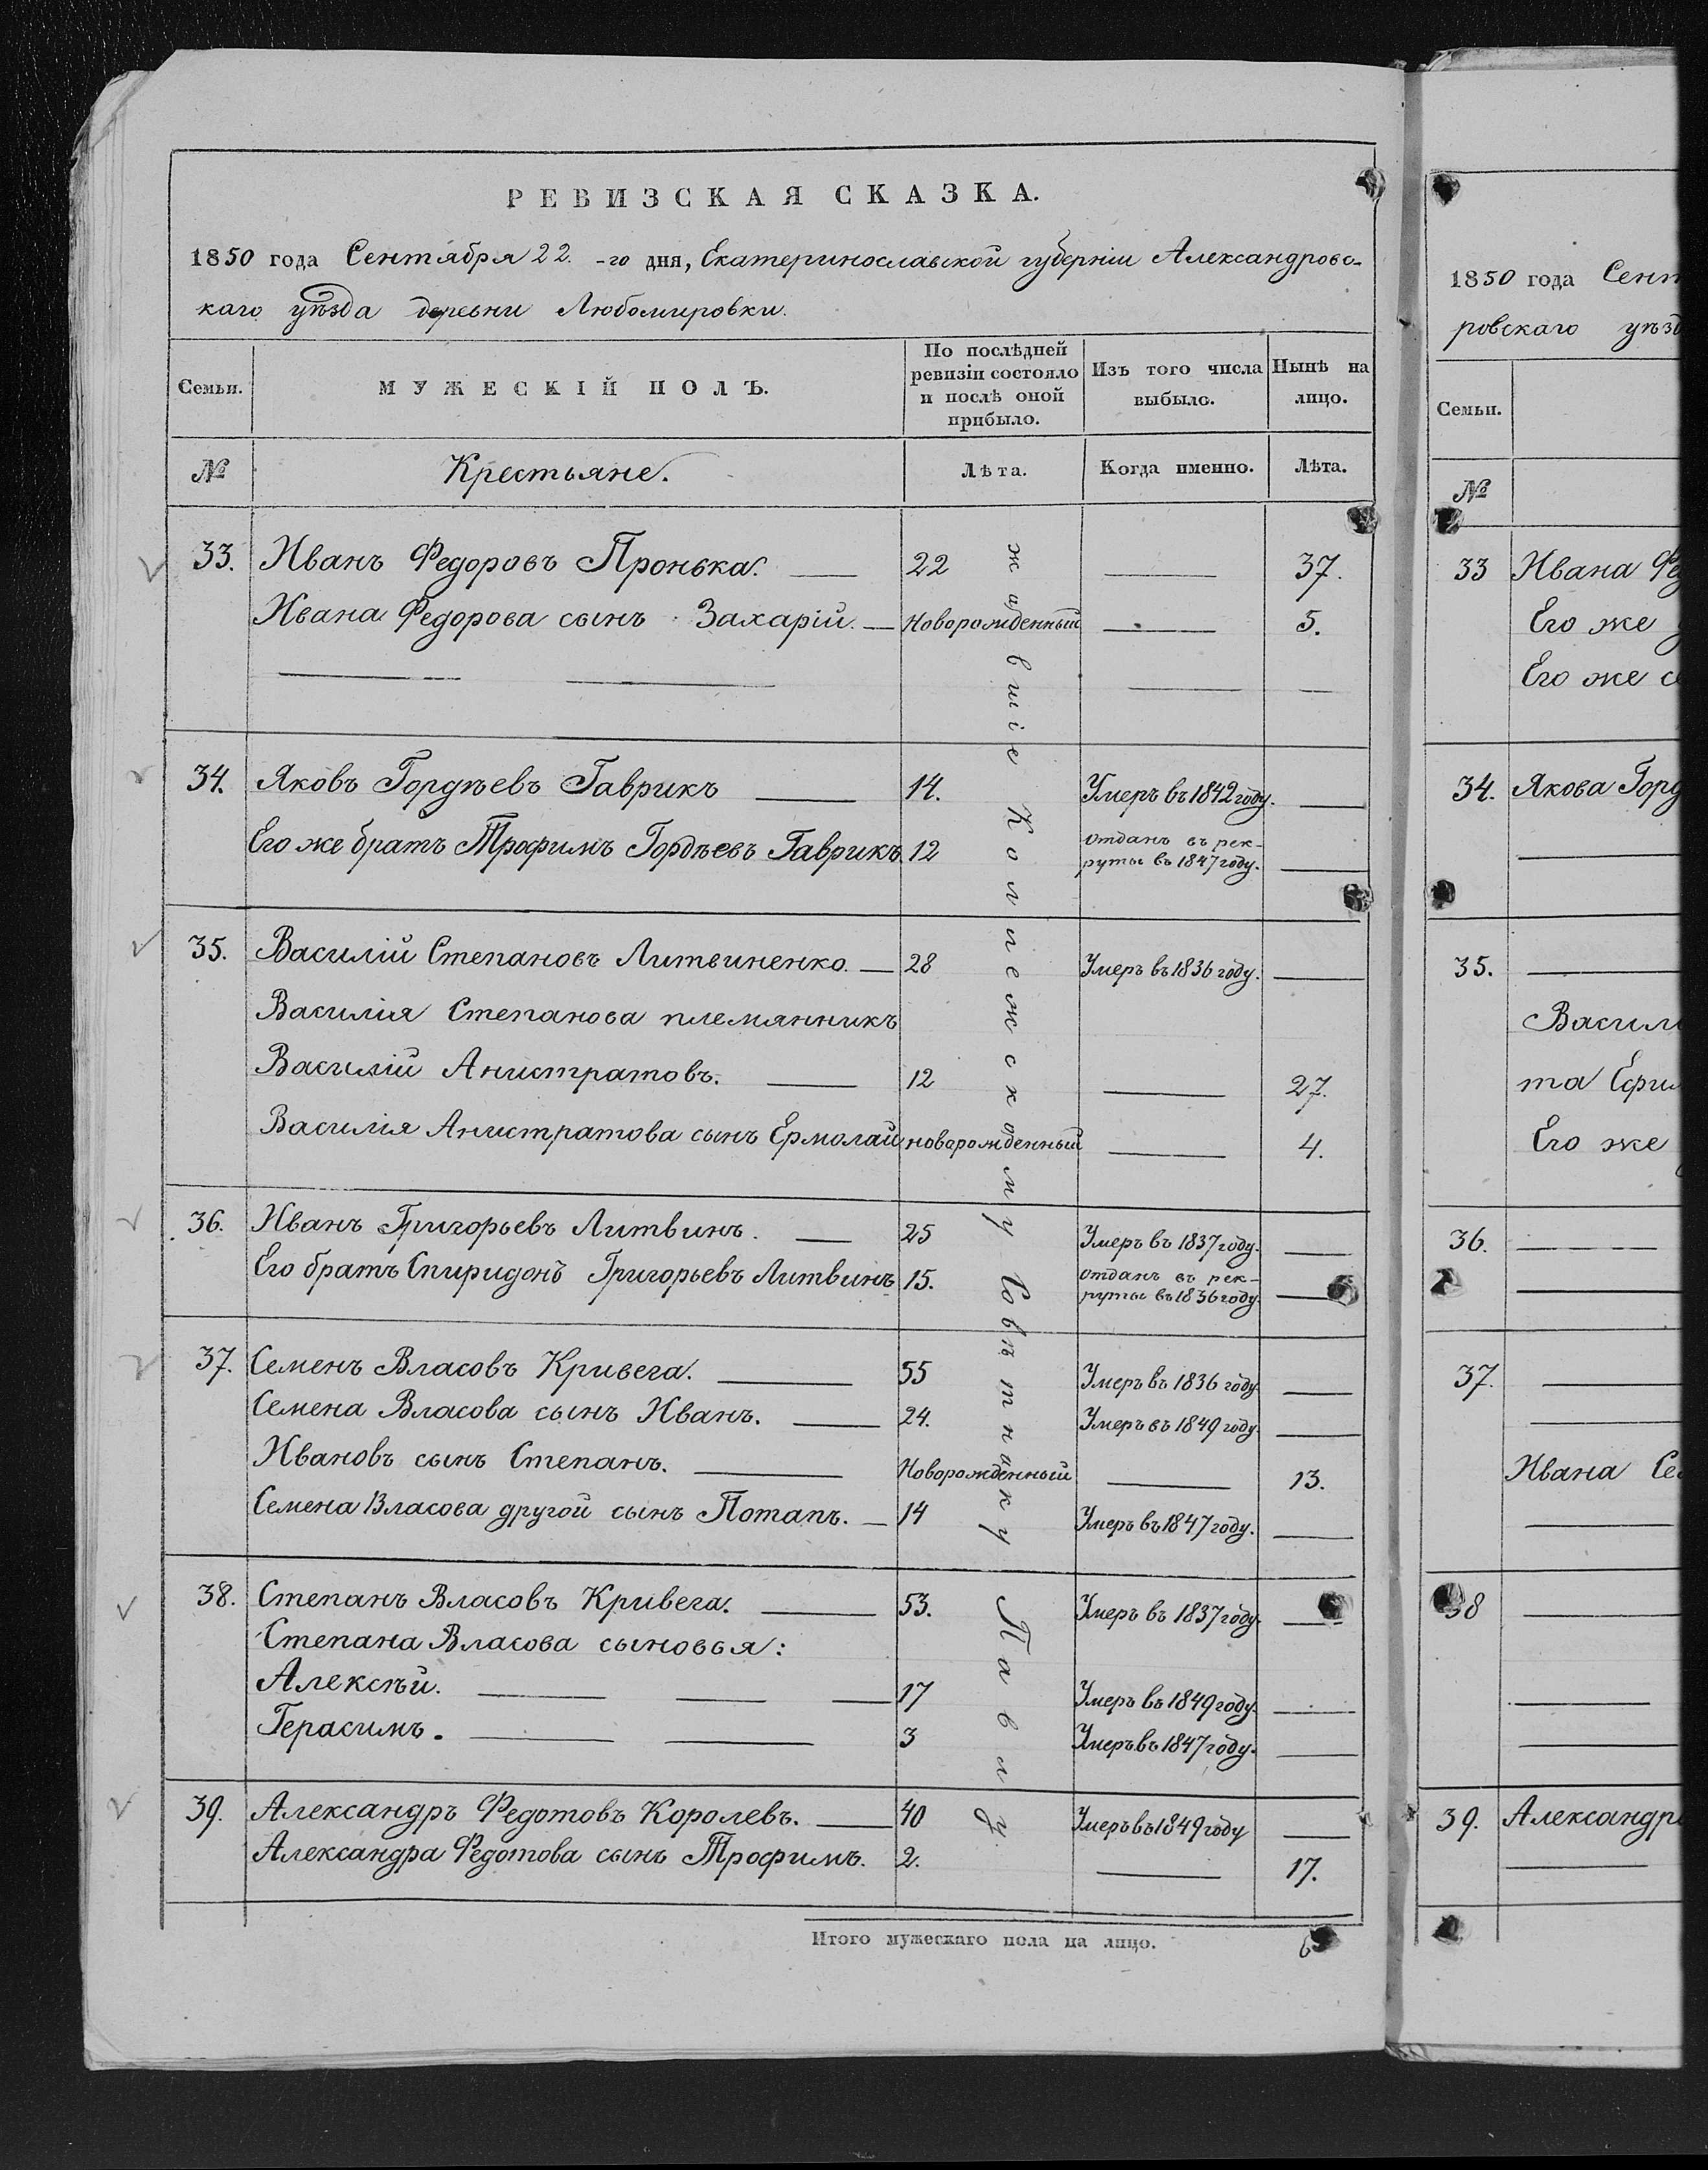 РЕВИЗСКАЯ СКАЗКА.
1850 года Сентября 22.-го дня, Екатеринославской губерніи Александровс-
каго уѣзда деревни Любомировки.
Семьи.
МУЖЕСКІЙ ПОЛЪ.
По послѣдней ревизіи состояло и послѣ оной прибыло.
Изъ того числа выбыло.
Нынѣ на лицо.
№ Крестьяне. Лѣта. Когда именно. Лѣта.
33. Иванъ Федоровъ Пронька. 22 37.
Ивана Федорова сынъ Захарій. Новорожденный 5.
34. Яковъ Гордѣевъ Гаврикъ 14. Умеръ въ 1842 году.
Его же братъ Трофимъ Гордѣевъ Гаврикъ. 12 отданъ въ рек-
руты въ 1847 году.
35. Василій Степановъ Литвиненко. 28 Умеръ въ 1836 году.
Василія Степанова племянникъ
Василій Анистратовъ. 12 27.
Василія Анистратова сынъ Ермолай новорожденный 4.
36. Иванъ Григорьевъ Литвинъ. 25 Умеръ въ 1837 году.
Его братъ Спиридонъ Григорьевъ Литвинъ 15. отданъ въ рек-
руты въ 1836 году.
37. Семенъ Власовъ Кривега. 55 Умеръ въ 1836 году
Семена Власова сынъ Иванъ. 24. Умеръ въ 1849 году
Ивановъ сынъ Степанъ. Новорожденный 13.
Семена Власова другой сынъ Потапъ. 14 Умеръ въ 1847 году.
38. Степанъ Власовъ Кривега. 53. Умеръ въ 1837 году.
Степана Власова сыновья:
Алексѣй. 17 Умеръ въ 1849 году.
Герасимъ. 3 Умеръ въ 1847 году.
39. Александръ Федотовъ Королевъ. 40 Умеръ въ 1849 году
Александра Федотова сынъ Трофимъ. 2. 17.
жавшіе Коллежскому Совѣтнику Павлу
Итого мужескаго пола на лицо.
1850 года Сент
ровскаго уѣзд
Семьи.
№
33 Ивана Фед
Его же
Его же
34. Якова Горд
35.
Васил
та Ефи
Его же
36.
37.
Ивана Се
38
39. Александр